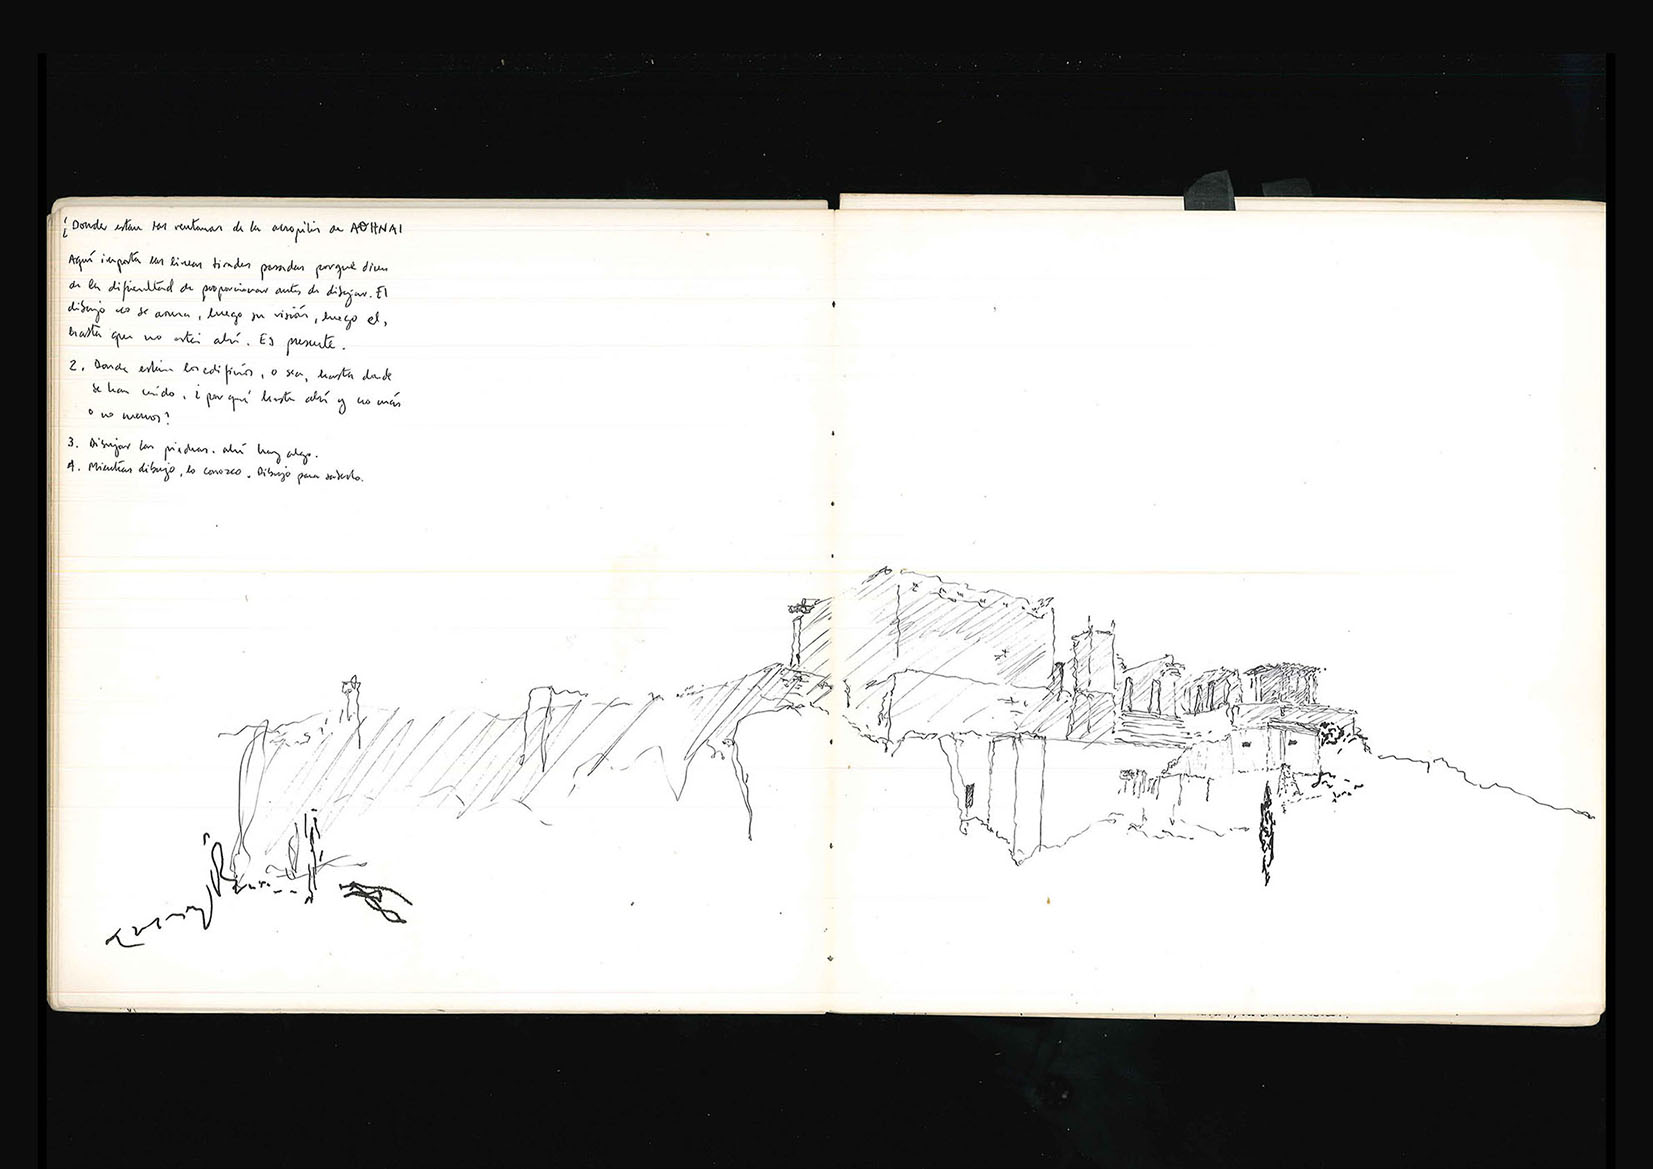 ¿Donde estan las ventanas de la acropilis de AΘHNAI
Aquí importa las lineas tiradas pasadas porqué dicen
de la dificultad de proporcionar antes de dibujar. El
dibujo no se arma, luego su visión, luego el,
hasta que no esté ahí. Es presente.
2. Donde están los edificios, o sea, hasta donde
se han caído. ¿por qué hasta ahí y no más
o no menos?
3. Dibujar las piedras. ahí hay algo.
4. Mientras dibujo, lo conozco. Dibujo para saberlo.